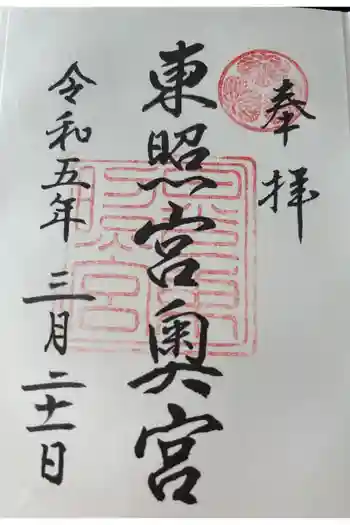 奉拝
東照宮奥宮
令和五年三月二十一日